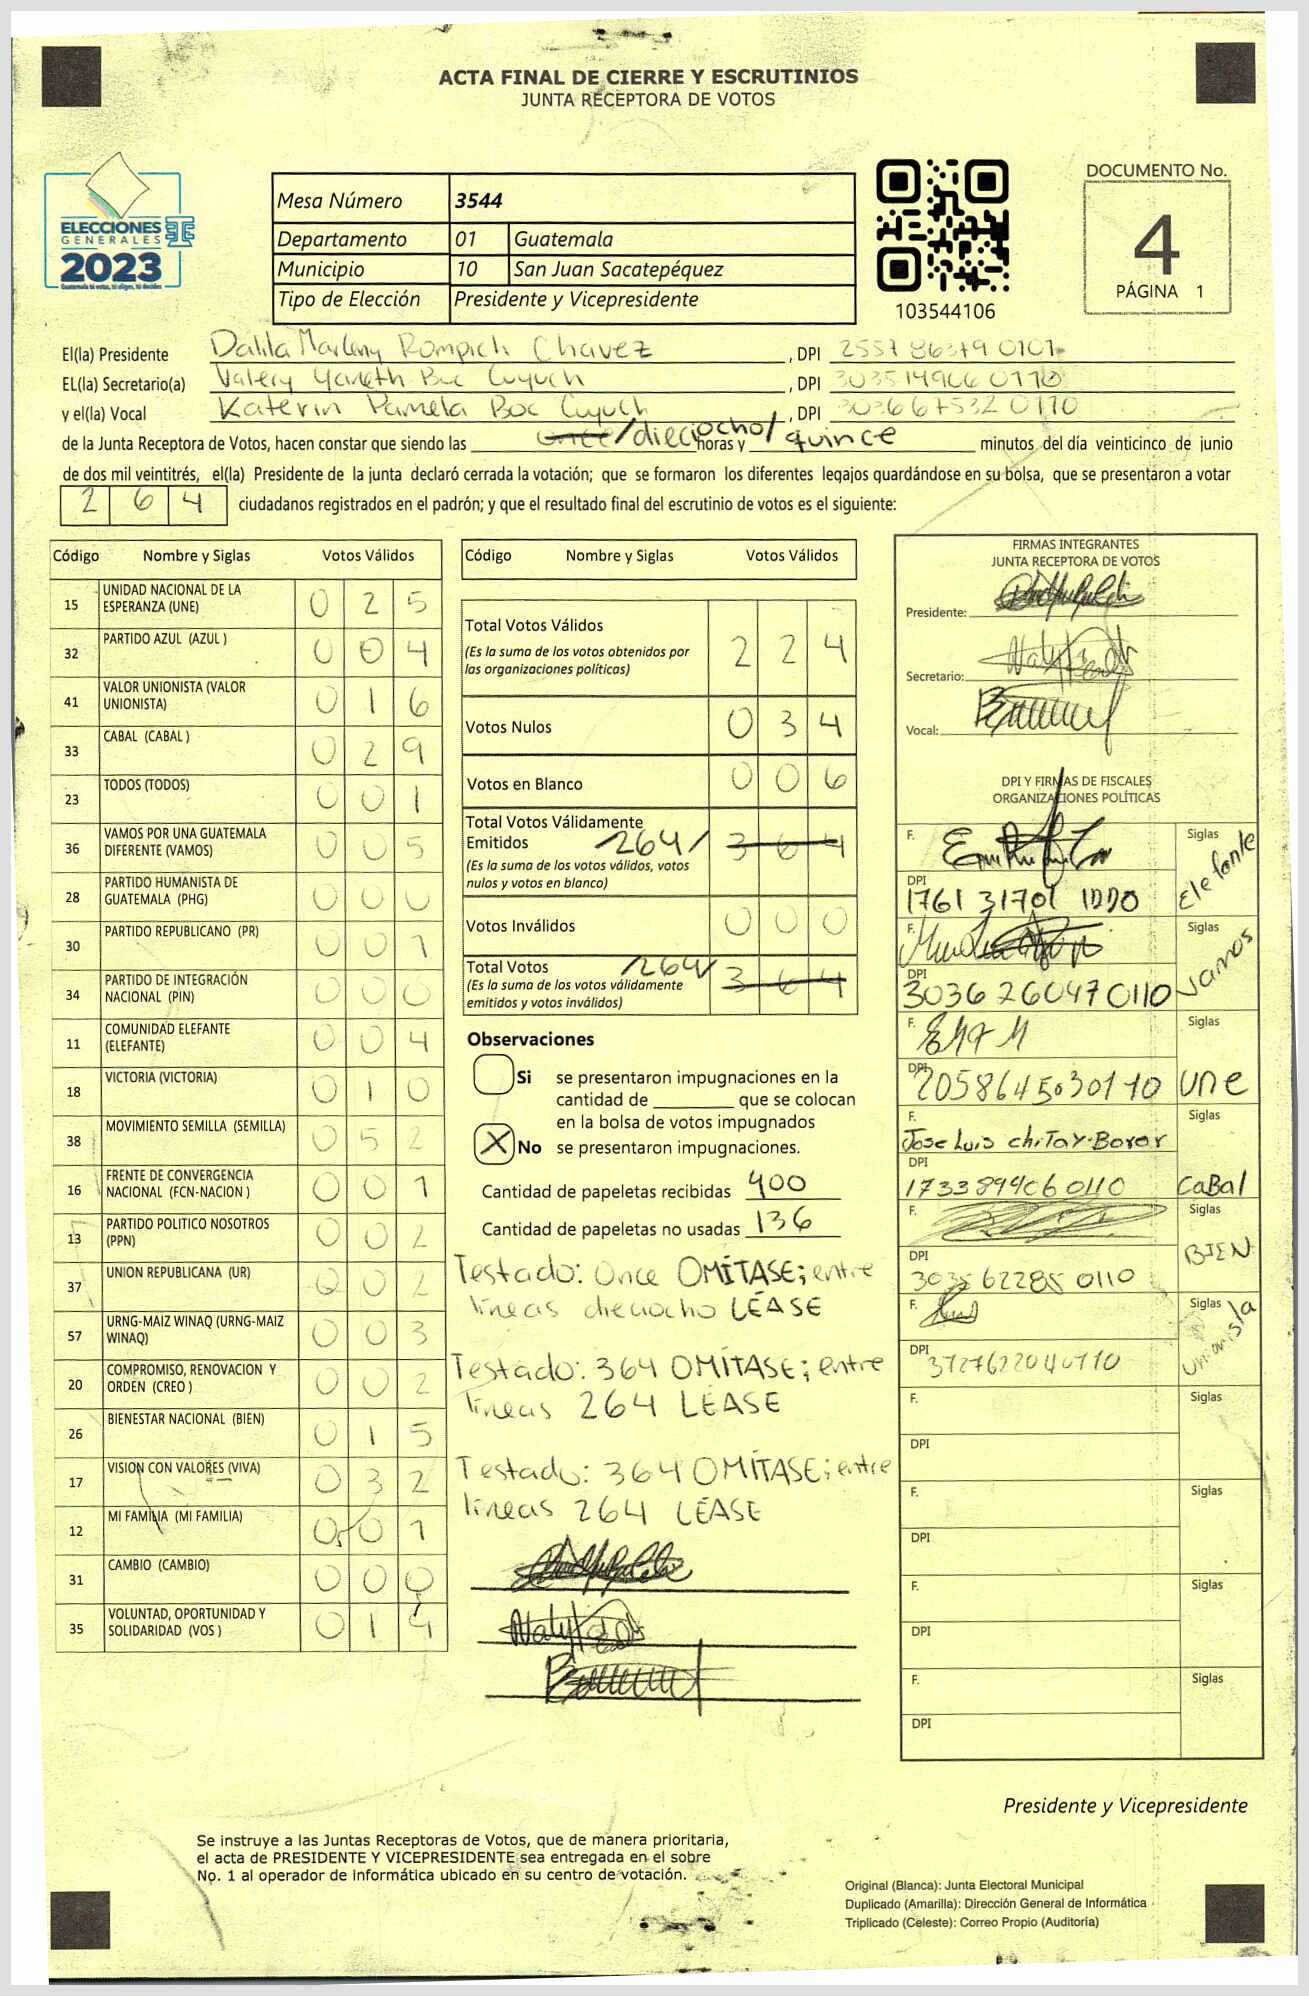 ACTA FINAL DE CIERRE Y ESCRUTINIOS
JUNTA RECEPTORA DE VOTOS
ELECCIONES
GENERALES
2023
Guatemala tú votas, tú eliges, tú decides
Mesa Número 3544
Departamento 01 Guatemala
Municipio 10 San Juan Sacatepéquez
Tipo de Elección Presidente y Vicepresidente
103544106
DOCUMENTO No.
4
PÁGINA 1
El(la) Presidente Dalila Marleny Rompich Chavez , DPI 2557 86379 0101
EL(la) Secretario(a) Valery Yaneth Boc Cuyuch , DPI 303514906 0110
y el(la) Vocal Katerin Pamela Boc Cuyuch , DPI 303667532 0110
de la Junta Receptora de Votos, hacen constar que siendo las once/dieciocho/ horas y quince minutos del día veinticinco de junio
de dos mil veintitrés, el(la) Presidente de la junta declaró cerrada la votación; que se formaron los diferentes legajos guardándose en su bolsa, que se presentaron a votar
2 6 4 ciudadanos registrados en el padrón; y que el resultado final del escrutinio de votos es el siguiente:
Código Nombre y Siglas Votos Válidos
15 UNIDAD NACIONAL DE LA
ESPERANZA (UNE) 0 2 5
32 PARTIDO AZUL (AZUL ) 0 0 4
41 VALOR UNIONISTA (VALOR
UNIONISTA) 0 1 6
33 CABAL (CABAL ) 0 2 9
23 TODOS (TODOS) 0 0 1
36 VAMOS POR UNA GUATEMALA
DIFERENTE (VAMOS) 0 0 5
28 PARTIDO HUMANISTA DE
GUATEMALA (PHG) 0 0 0
30 PARTIDO REPUBLICANO (PR) 0 0 1
34 PARTIDO DE INTEGRACIÓN
NACIONAL (PIN) 0 0 0
11 COMUNIDAD ELEFANTE
(ELEFANTE) 0 0 4
18 VICTORIA (VICTORIA) 0 1 0
38 MOVIMIENTO SEMILLA (SEMILLA) 0 5 2
16 FRENTE DE CONVERGENCIA
NACIONAL (FCN-NACION ) 0 0 1
13 PARTIDO POLITICO NOSOTROS
(PPN) 0 0 2
37 UNION REPUBLICANA (UR) 0 0 2
57 URNG-MAIZ WINAQ (URNG-MAIZ
WINAQ) 0 0 3
20 COMPROMISO, RENOVACION Y
ORDEN (CREO ) 0 0 2
26 BIENESTAR NACIONAL (BIEN) 0 1 5
17 VISION CON VALORES (VIVA) 0 3 2
12 MI FAMILIA (MI FAMILIA) 0 0 1
31 CAMBIO (CAMBIO) 0 0 0
35 VOLUNTAD, OPORTUNIDAD Y
SOLIDARIDAD (VOS ) 0 1 4
Código Nombre y Siglas Votos Válidos
Total Votos Válidos
(Es la suma de los votos obtenidos por
las organizaciones políticas) 2 2 4
Votos Nulos 0 3 4
Votos en Blanco 0 0 6
Total Votos Válidamente
Emitidos 264/ 3 6 4
(Es la suma de los votos válidos, votos
nulos y votos en blanco)
Votos Inválidos 0 0 0
Total Votos 264/ 3 6 4
(Es la suma de los votos válidamente
emitidos y votos inválidos)
Observaciones
Si se presentaron impugnaciones en la
cantidad de ________ que se colocan
en la bolsa de votos impugnados
X No se presentaron impugnaciones.
Cantidad de papeletas recibidas 400
Cantidad de papeletas no usadas 136
Testado: Once OMÍTASE; entre
líneas dieciocho LÉASE
Testado: 364 OMÍTASE; entre
líneas 264 LÉASE
Testado: 364 OMÍTASE; entre
líneas 264 LÉASE
FIRMAS INTEGRANTES
JUNTA RECEPTORA DE VOTOS
Presidente:
Secretario:
Vocal:
DPI Y FIRMAS DE FISCALES
ORGANIZACIONES POLÍTICAS
F. Siglas
DPI 1761 31701 1000 Elefante
F. Siglas
DPI 3036 26047 0110 Vamos
F. Siglas
DPI 2058645030110 une
F. Jose Luis chiTay-Boror Siglas
DPI 1733894060110 CaBal
F. Siglas
DPI 3035 62285 0110 BIEN
F. Siglas
DPI 3727622040110 Unionista
F. Siglas
DPI
F. Siglas
DPI
F. Siglas
DPI
F. Siglas
DPI
Presidente y Vicepresidente
Se instruye a las Juntas Receptoras de Votos, que de manera prioritaria,
el acta de PRESIDENTE Y VICEPRESIDENTE sea entregada en el sobre
No. 1 al operador de informática ubicado en su centro de votación.
Original (Blanca): Junta Electoral Municipal
Duplicado (Amarilla): Dirección General de Informática
Triplicado (Celeste): Correo Propio (Auditoría)